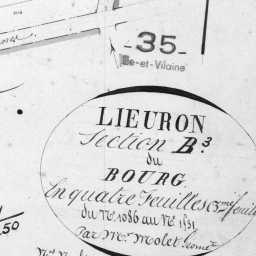 35
Ille-et-Vilaine
LIEURON
Section B.3
du
BOURG
En quatre Feuilles 3me feuille
du No. 1086 au No. 1531
Par Mr. Molet Géomre
50